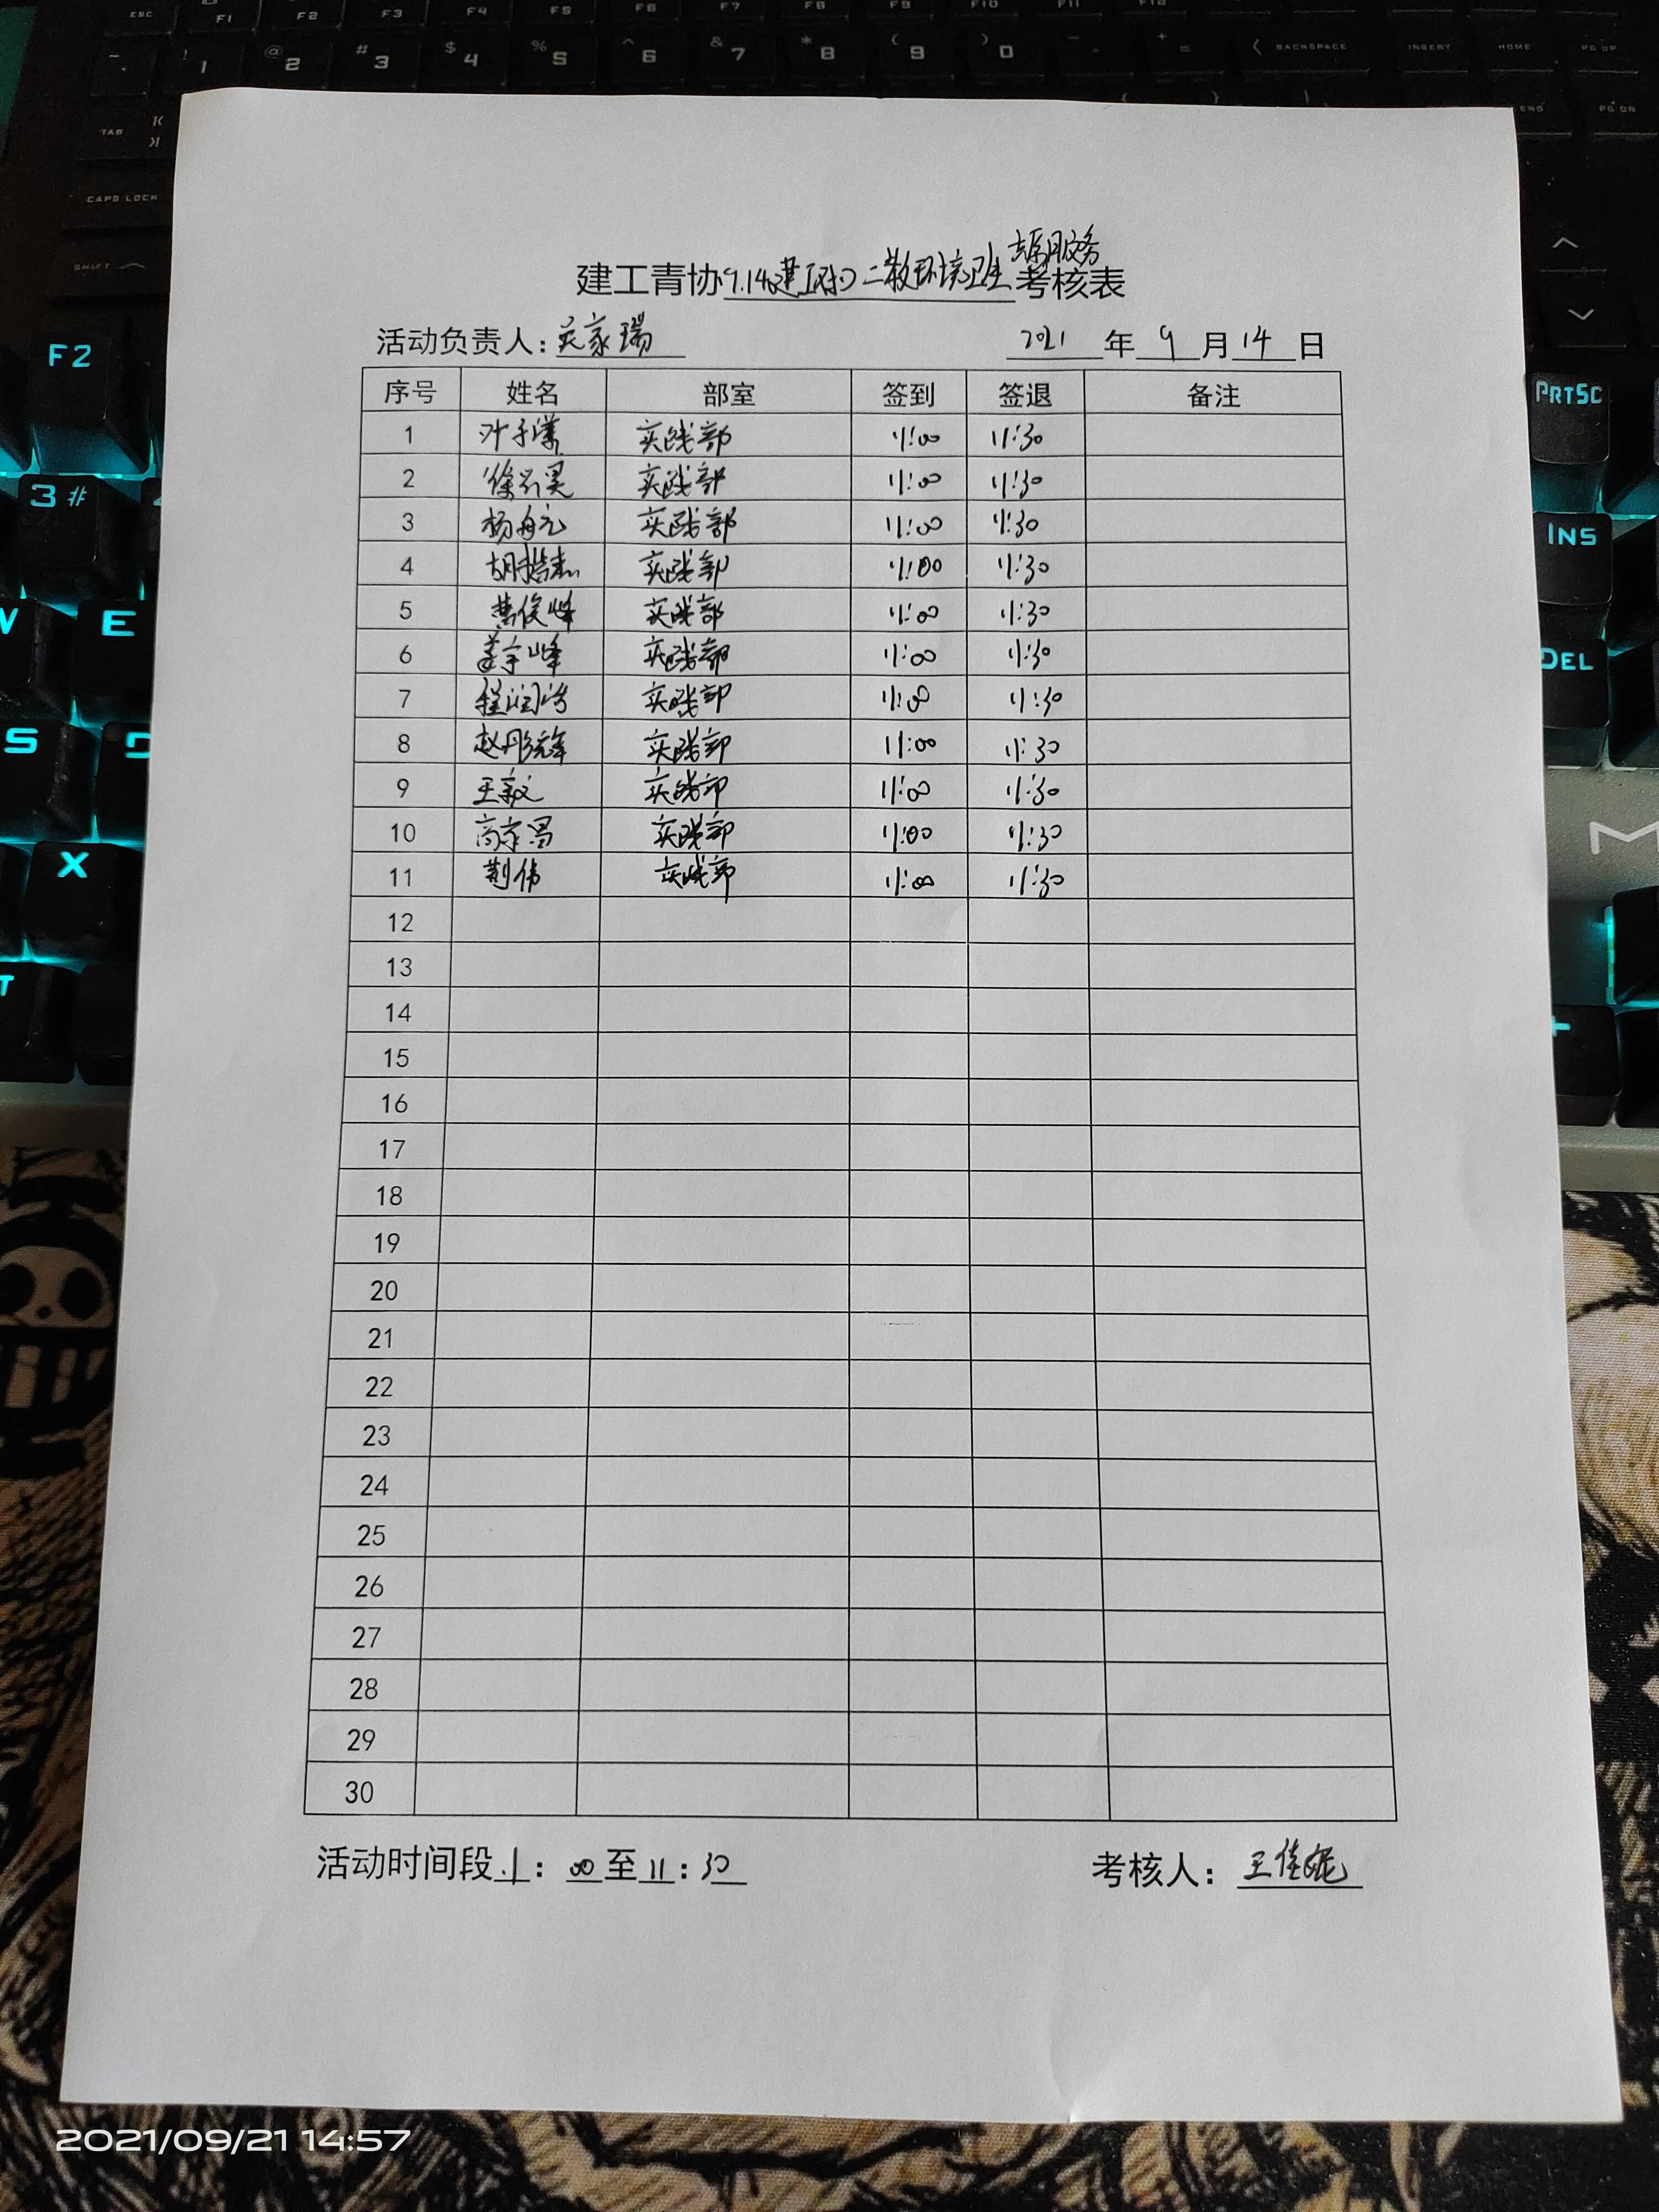 ESC F1 F2 F3 F4 F5 F6 F7 F8 F9 F10 F11 F12
! 1 @ 2 # 3 $ 4 % 5 ^ 6 & 7 * 8 ( 9 ) 0 - + = BACKSPACE INSERT HOME PG UP
TAB END PG DN
CAPS LOCK
SHIFT
志愿服务
建工青协9.14建工 二教环境卫生考核表
活动负责人:吴家瑞 2021 年 9 月 14 日
序号 姓名 部室 签到 签退 备注
1 叶子 实践部 11:00 11:30
2 徐 昊 实践部 11:00 11:30
3 杨舟元 实践部 11:00 11:30
4 胡 杰 实践部 11:00 11:30
5 黄俊峰 实践部 11:00 11:30
6 姜宇峰 实践部 11:00 11:30
7 程润 实践部 11:00 11:30
8 赵彤 实践部 11:00 11:30
9 王毅 实践部 11:00 11:30
10 高京昌 实践部 11:00 11:30
11 荆伟 实践部 11:00 11:30
12
13
14
15
16
17
18
19
20
21
22
23
24
25
26
27
28
29
30
活动时间段11:00至11:30 考核人:王佳妮
F2
3 #
W E
S
X
PRTSC
INS
DEL
+
2021/09/21 14:57